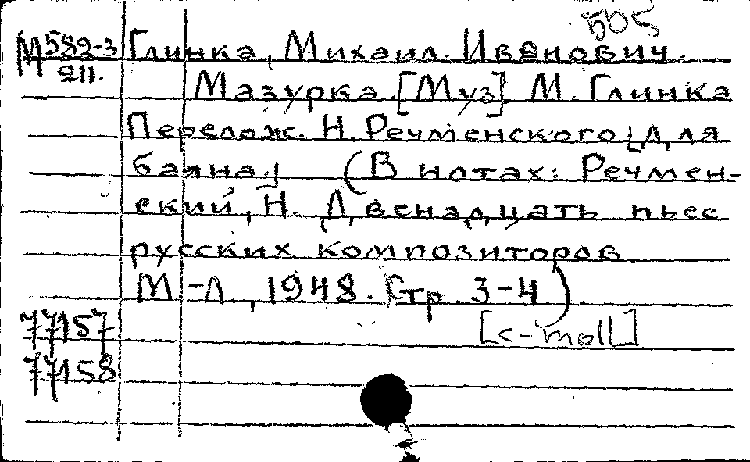 505
М 582-3 Глинка, Михаил Иванович.
211. Мазурка [Муз] М. Глинка
Перелож. Н. Речменского [для
баяна] (В нотах: Речмен-
ский, Н. Двенадцать пьес
русских композиторов
М-Л, 1948. Стр. 3-4)
77157 [c-moll]
77158